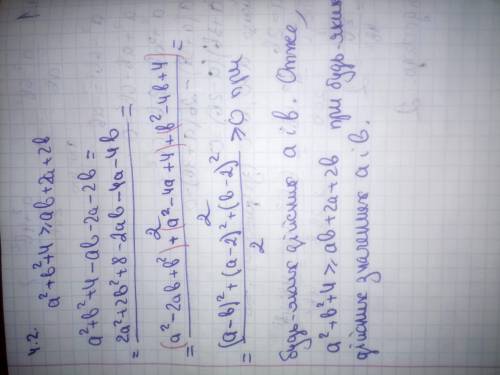 4.2. a²+b²+4 ≥ ab+2a+2b
a²+b²+4-ab-2a-2b =
= 2a²+2b²+8-2ab-4a-4b / 2 =
= (a²-2ab+b²)+(a²-4a+4)+(b²-4b+4) / 2 =
= (a-b)²+(a-2)²+(b-2)² / 2 ≥ 0 при
будь-яких дійсних a і b. Отже,
a²+b²+4 ≥ ab+2a+2b при будь-яких
дійсних значеннях a і b.